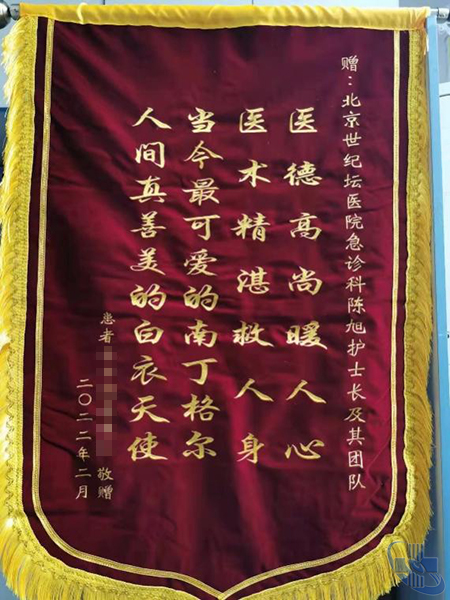 赠：北京世纪坛医院急诊科陈旭护士长及其团队
医德高尚暖人心
医术精湛救人身
当今最可爱的南丁格尔
人间真善美的白衣天使
患者
敬赠
二〇二二年二月